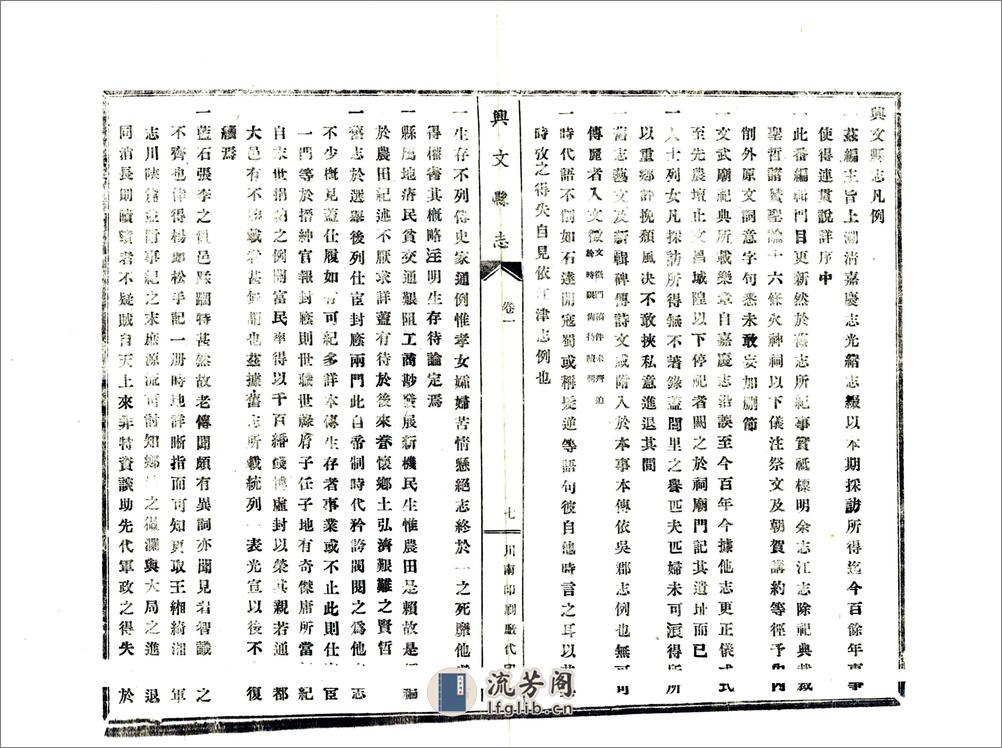 興文縣志凡例
一茲編主旨上溯清嘉慶志光緒志綴以本期採訪所得迄今百餘年事
使得連貫說詳序中
一此番編輯門目更新然於舊志所紀事實祗標明余志江志除祀典裁
聖哲諸贊聖諭十六條火神祠以下儀注祭文及朝賀講約等徑予
削外原文詞意字句悉未敢妄加刪節
一文武廟祀典所載樂章自嘉慶志沿誤至今百年今據他志更正儀式
至先農壇止文昌城隍以下停祀者闕之於祠廟門記其遺址而已
一人士列女凡採訪所得無不著錄蓋閭里之譽匹夫匹婦未可沒得所
以重鄉評挽頹風決不敢挾私意進退其間
一舊志藝文及新輯碑傳詩文咸附入於本事本傳依吳郡志例也無可
傳麗者入文徵
一時代語不削如石達開寇蜀或稱髮逆等語句彼自他時言之耳以
時攷之得失自見依江津志例也
興文縣志
卷一
七
川南印刷廠代
一生存不列傳史家通例惟孝女孀婦苦情懸絕志終於一之死靡他
得權書其槪略注明生存待論定焉
一縣屬地瘠民貧交通艱阻工商尠發展新機民生惟農田是賴故是
於農田紀述不厭求詳蓋有待於後來眷懷鄉土弘濟艱難之賢哲
一舊志於選舉後列仕宦封廕兩門此自帝制時代矜誇閥閱之爲他志
不少槪見蓋仕履如有可紀多詳本傳生存者事業或不止此則仕宦
一門等於搢紳官報封廕則世職世祿胄子任子地有奇傑庸所當紀
自末世捐納之例開富民率得以千百緡錢博虛封以榮其親若通都
大邑有不勝載者甚無謂也茲據舊志所載統列一表光宣以後不復
續焉
一藍石張李之徂邑罹禍特甚然故老傳聞頗有異詞亦聞見若智識之
不齊也倖得楊鄉松手記一册時地詳晰指而可知更取王緗綺湘軍
志川陝篇並附事紀之末庶源流可尋知鄉之微瀾與大局之進退
同消長則瞶瞶者不疑賊自天上來非特資談助先代軍政之得失於
流芳阁
lfglib.cn